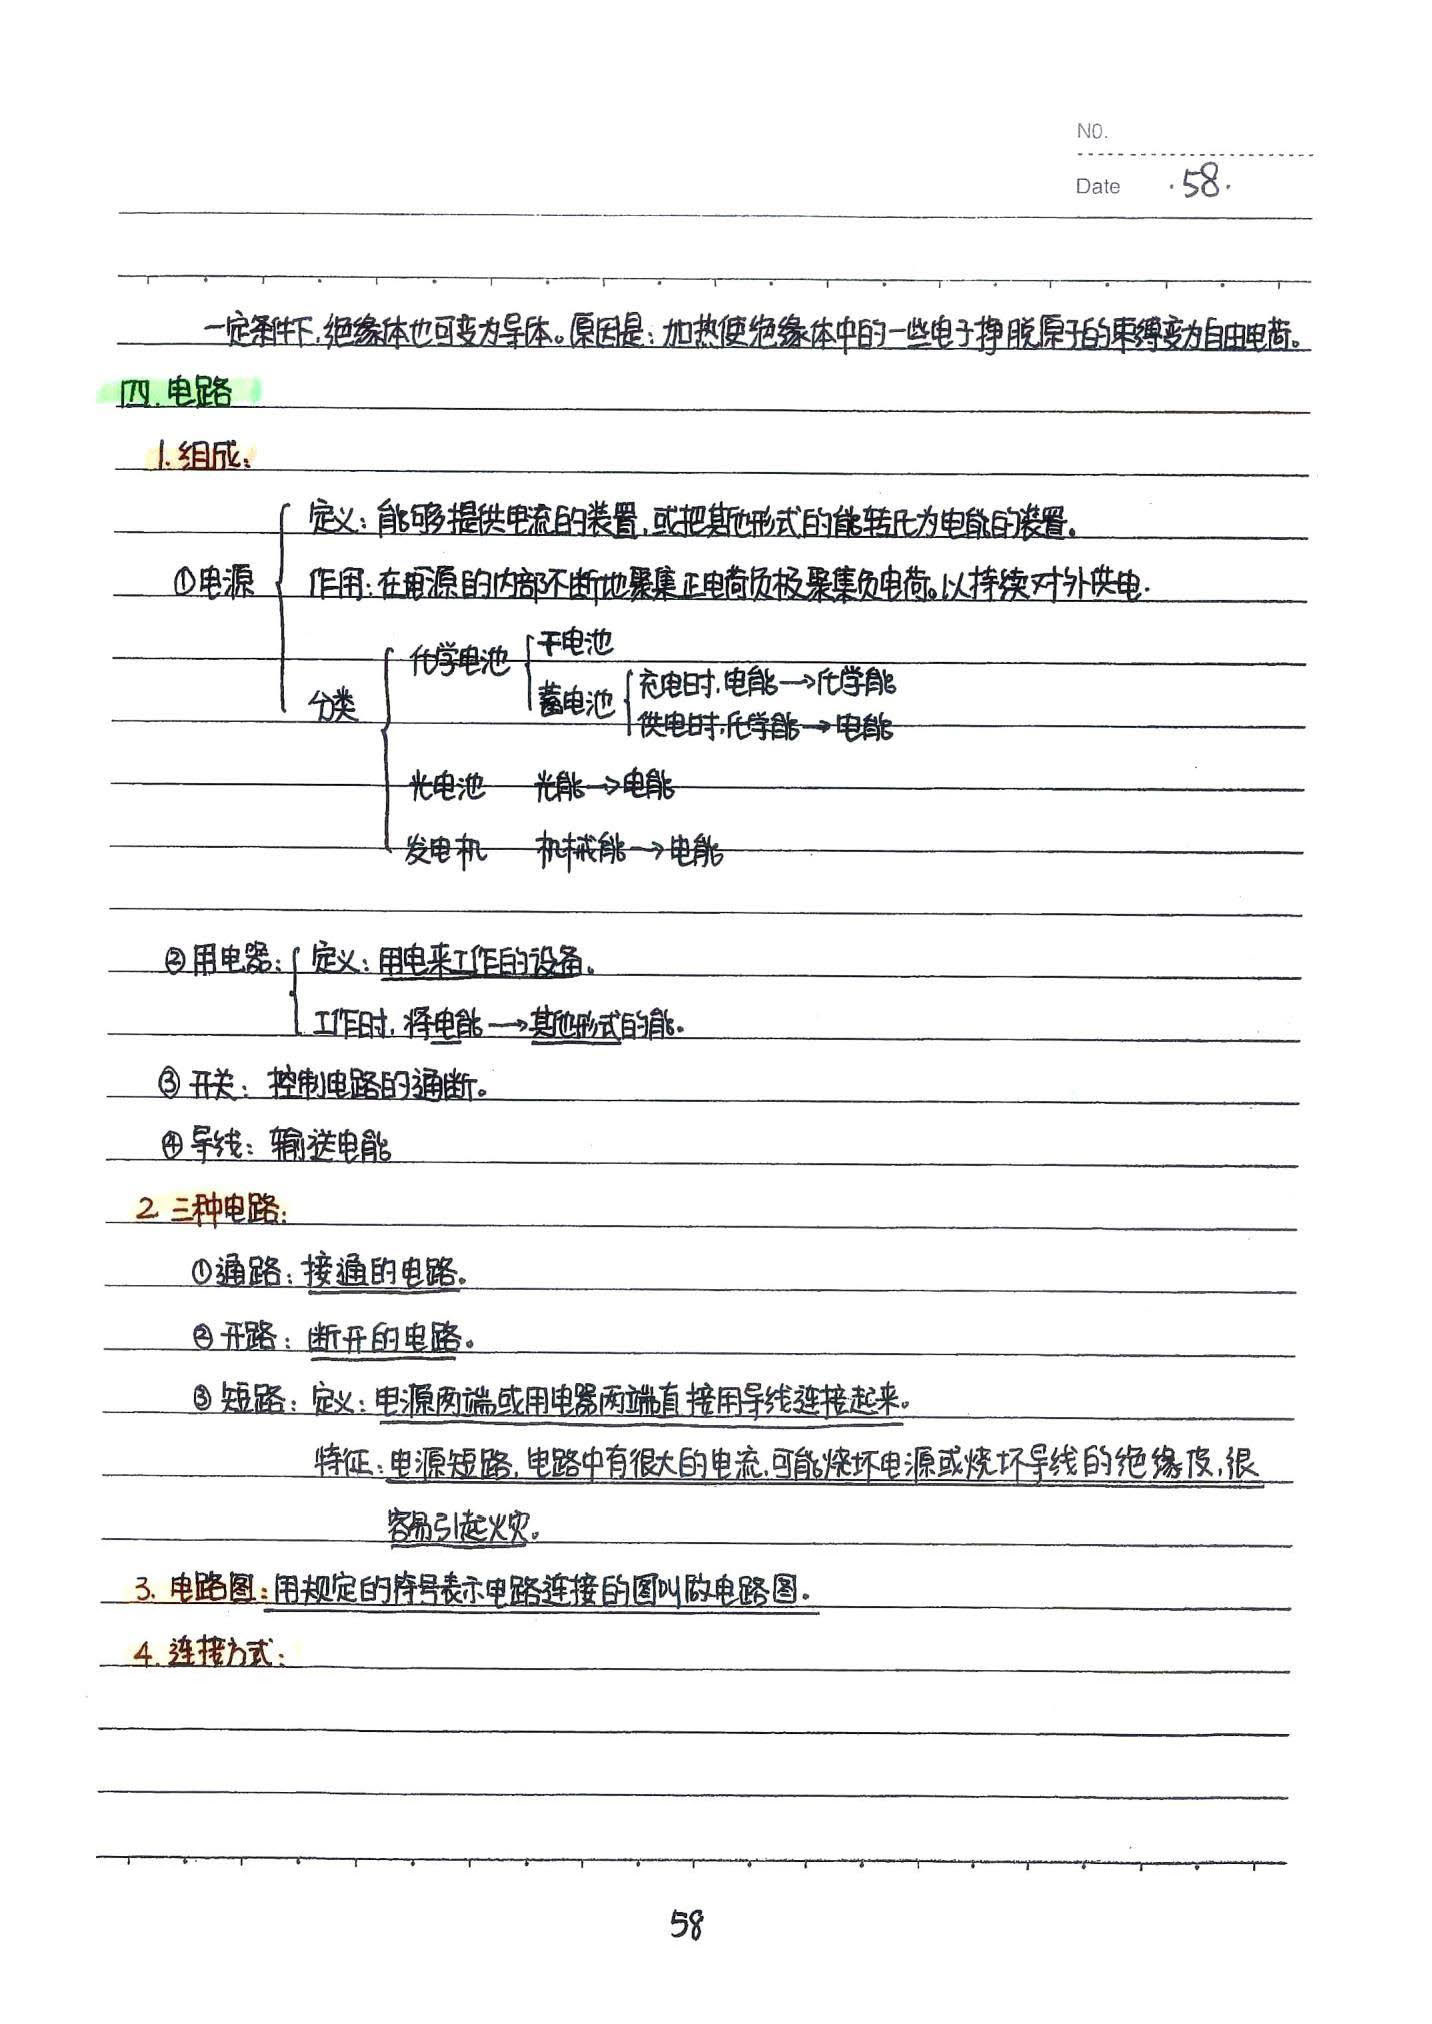 NO.
Date ·58·
一定条件下,绝缘体也可变为导体。原因是:加热使绝缘体中的一些电子挣脱原子的束缚变为自由电荷。
四.电路
1.组成:
定义:能够提供电流的装置,或把其他形式的能转化为电能的装置。
①电源
作用:在电源的内部不断地聚集正电荷负极聚集负电荷。以持续对外供电.
化学电池
干电池
蓄电池
充电时,电能→化学能
供电时,化学能→电能
分类
光电池 光能→电能
发电机 机械能→电能
②用电器: 定义:用电来工作的设备。
工作时,将电能→其他形式的能。
③开关:控制电路的通断。
④导线:输送电能
2.三种电路:
①通路:接通的电路。
②开路:断开的电路。
③短路:定义:电源两端或用电器两端直接用导线连接起来。
特征:电源短路,电路中有很大的电流,可能烧坏电源或烧坏导线的绝缘皮,很
容易引起火灾。
3.电路图:用规定的符号表示电路连接的图叫做电路图.
4.连接方式:
58